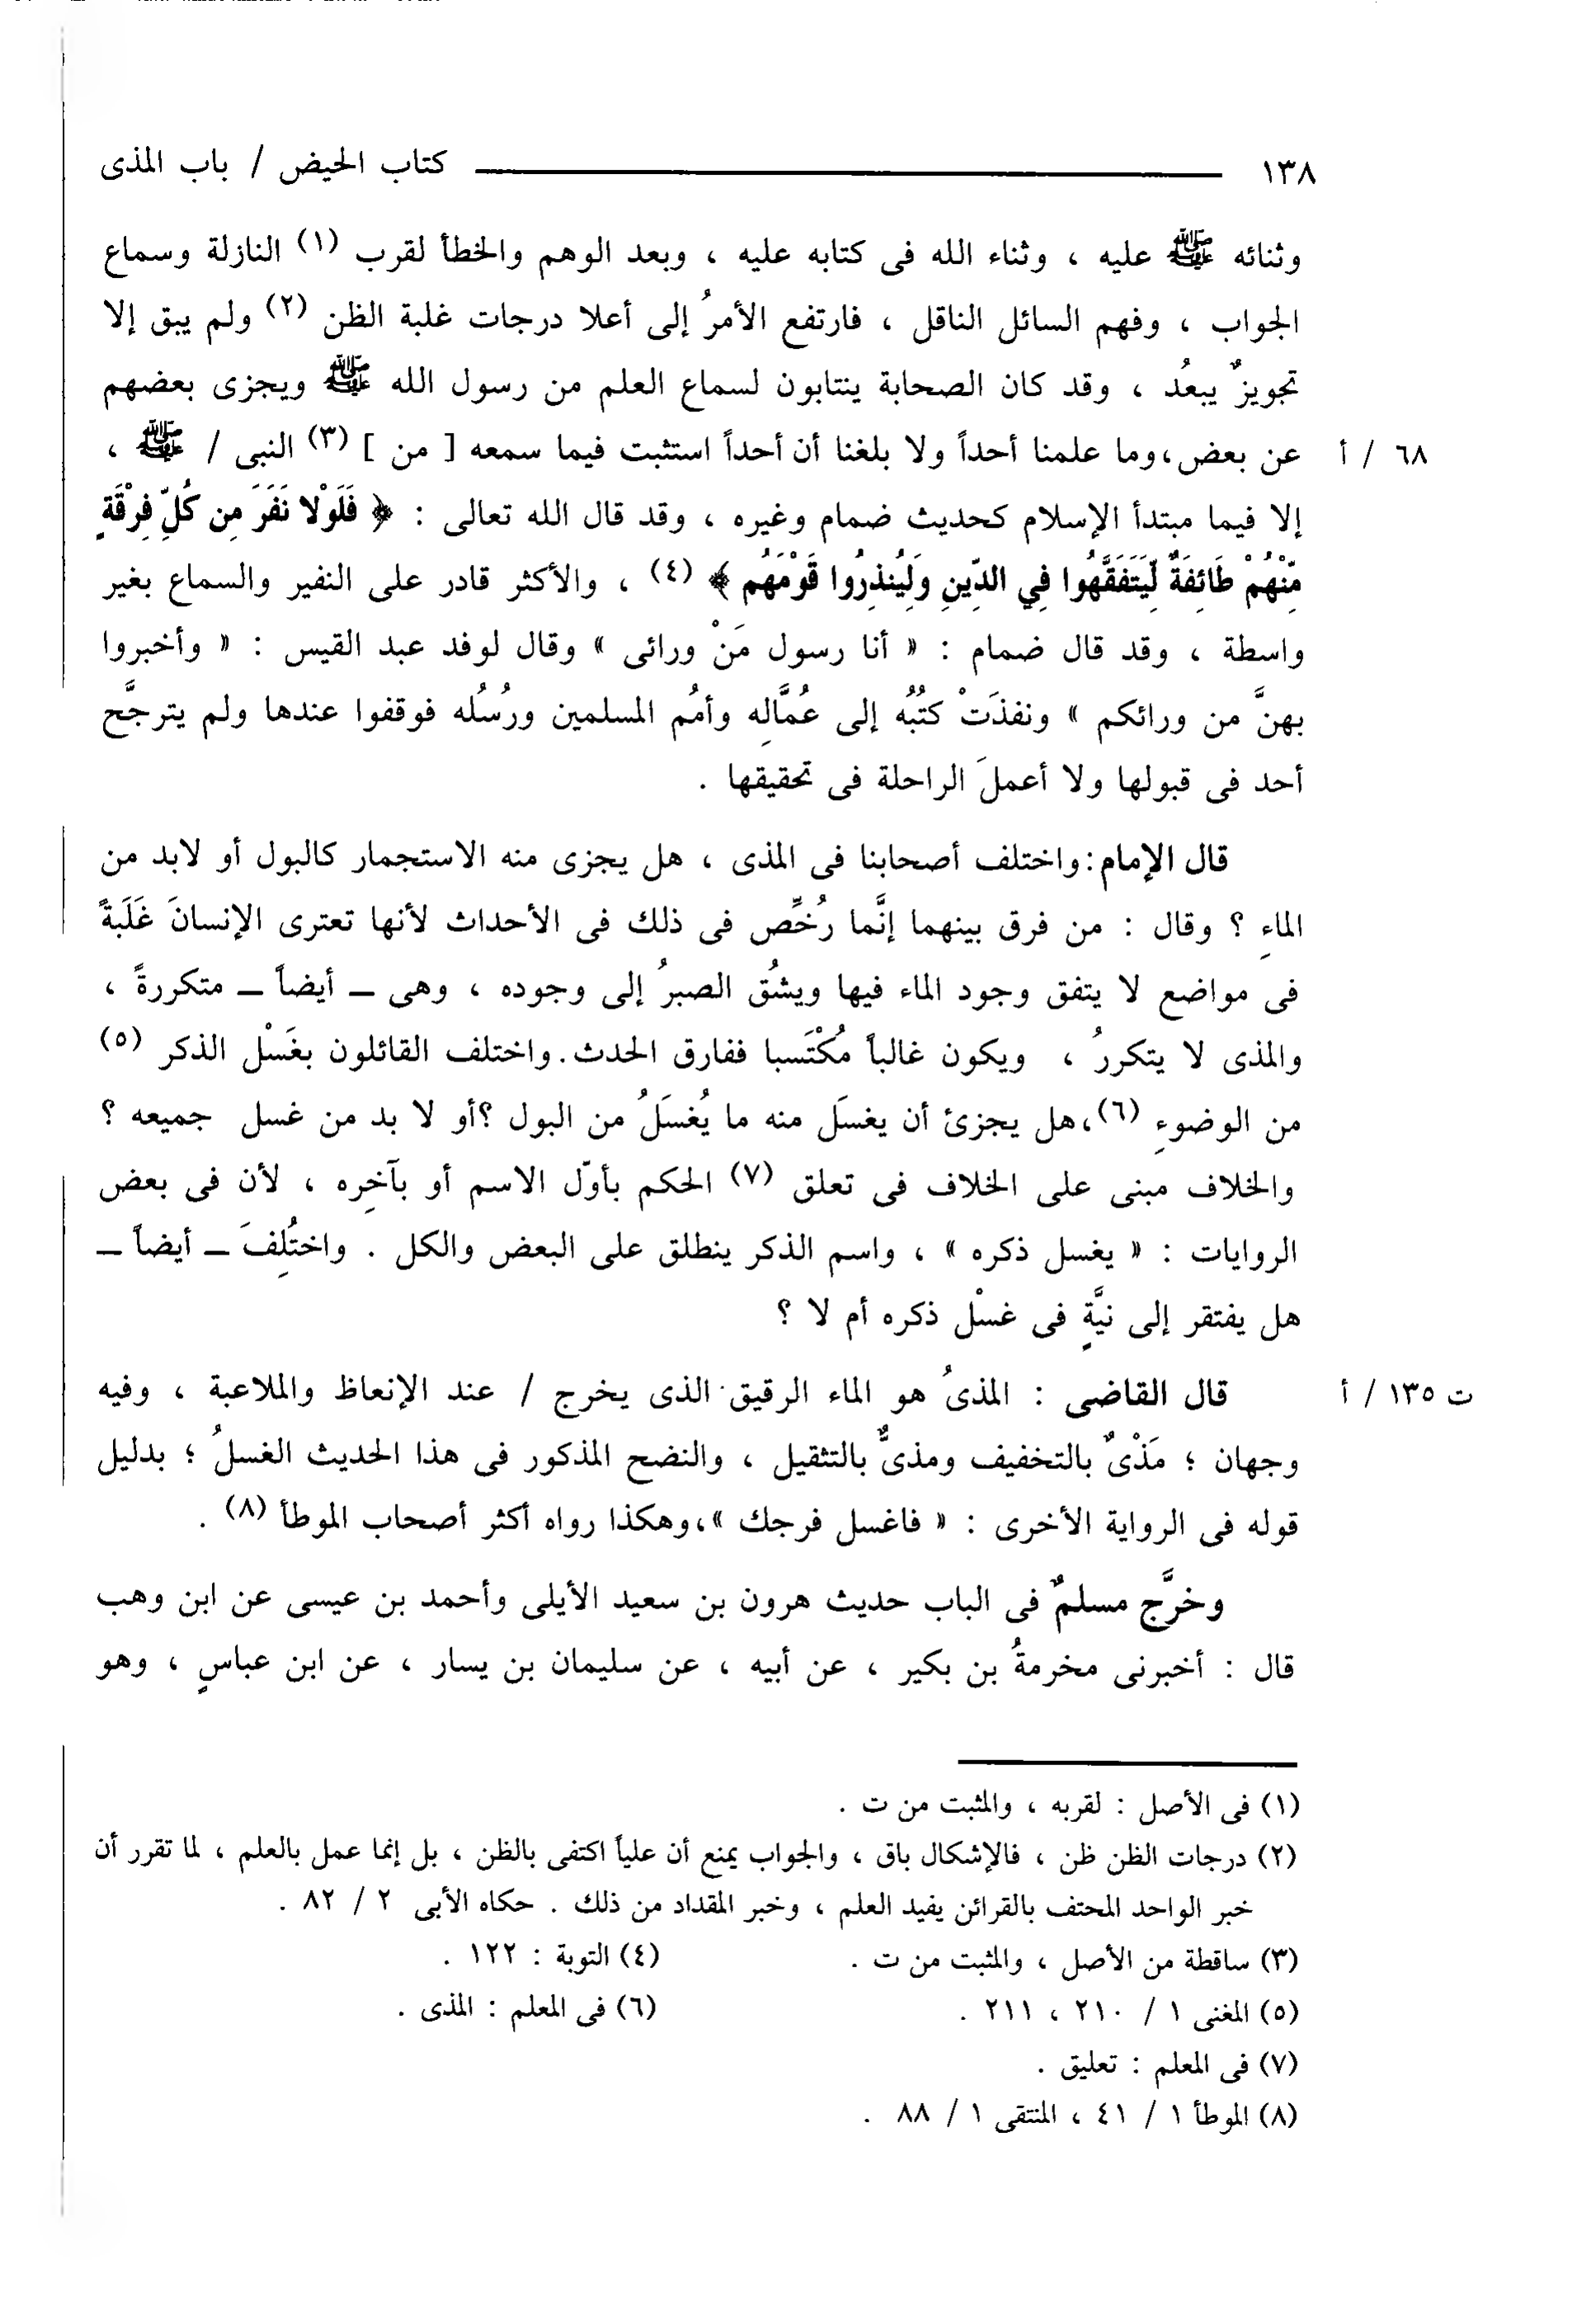 ١٣٨ كتاب الحيض / باب المذى
وثنائه ﷺ عليه ، وثناء الله فى كتابه عليه ، وبعد الوهم والخطأ لقرب (١) النازلة وسماع
الجواب ، وفهم السائل الناقل ، فارتفع الأمرُ إلى أعلا درجات غلبة الظن (٢) ولم يبق إلا
تجويزٌ يبعُد ، وقد كان الصحابة ينتابون لسماع العلم من رسول الله ﷺ ويجزى بعضهم
٦٨ / أ عن بعض،وما علمنا أحداً ولا بلغنا أن أحداً استثبت فيما سمعه [ من ] (٣) النبى / ﷺ ،
إلا فيما مبتدأ الإسلام كحديث ضمام وغيره ، وقد قال الله تعالى : ﴿ فَلَوْلا نَفَرَ مِن كُلِّ فِرْقَةٍ
مِّنْهُمْ طَائِفَةٌ لِّيَتَفَقَّهُوا فِي الدِّينِ وَلِيُنذِرُوا قَوْمَهُم ﴾ (٤) ، والأكثر قادر على النفير والسماع بغير
واسطة ، وقد قال ضمام : « أنا رسول مَنْ ورائى » وقال لوفد عبد القيس : « وأخبروا
بهنَّ من ورائكم » ونفذَتْ كتُبُه إلى عُمَّالِه وأمُم المسلمين ورُسُله فوقفوا عندها ولم يترجَّح
أحد فى قبولها ولا أعملَ الراحلة فى تحقيقها .
قال الإمام:واختلف أصحابنا فى المذى ، هل يجزى منه الاستجمار كالبول أو لابد من
الماءِ ؟ وقال : من فرق بينهما إنَّما رُخِّص فى ذلك فى الأحداث لأنها تعترى الإنسانَ غَلَبةً
فى مواضع لا يتفق وجود الماء فيها ويشُق الصبرُ إلى وجوده ، وهى ــ أيضاً ــ متكررةً ،
والمذى لا يتكررُ ، ويكون غالباً مُكْتَسبا ففارق الحدث.واختلف القائلون بغَسْل الذكر (٥)
من الوضوءِ (٦)،هل يجزئ أن يغسَل منه ما يُغسَلُ من البول ؟أو لا بد من غسل جميعه ؟
والخلاف مبنى على الخلاف فى تعلق (٧) الحكم بأوّل الاسم أو بآخِره ، لأن فى بعض
الروايات : « يغسل ذكره » ، واسم الذكر ينطلق على البعض والكل . واختُلِفَ ــ أيضاً ــ
هل يفتقر إلى نيَّةٍ فى غسْل ذكره أم لا ؟
ت ١٣٥ / أ قال القاضى : المذىُ هو الماء الرقيق الذى يخرج / عند الإنعاظ والملاعبة ، وفيه
وجهان ؛ مَذْىٌ بالتخفيف ومذىٌّ بالتثقيل ، والنضح المذكور فى هذا الحديث الغسلُ ؛ بدليل
قوله فى الرواية الأخرى : « فاغسل فرجك »،وهكذا رواه أكثر أصحاب الموطأ (٨) .
وخرَّج مسلمٌ فى الباب حديث هرون بن سعيد الأيلى وأحمد بن عيسى عن ابن وهب
قال : أخبرنى مخرمةُ بن بكير ، عن أبيه ، عن سليمان بن يسار ، عن ابن عباسٍ ، وهو
(١) فى الأصل : لقربه ، والمثبت من ت .
(٢) درجات الظن ظن ، فالإشكال باق ، والجواب يمنع أن علياً اكتفى بالظن ، بل إنما عمل بالعلم ، لما تقرر أن
خبر الواحد المحتف بالقرائن يفيد العلم ، وخبر المقداد من ذلك . حكاه الأبى ٢ / ٨٢ .
(٣) ساقطة من الأصل ، والمثبت من ت . (٤) التوبة : ١٢٢ .
(٥) المغنى ١ / ٢١٠ ، ٢١١ . (٦) فى المعلم : المذى .
(٧) فى المعلم : تعليق .
(٨) الموطأ ١ / ٤١ ، المنتقى ١ / ٨٨ .